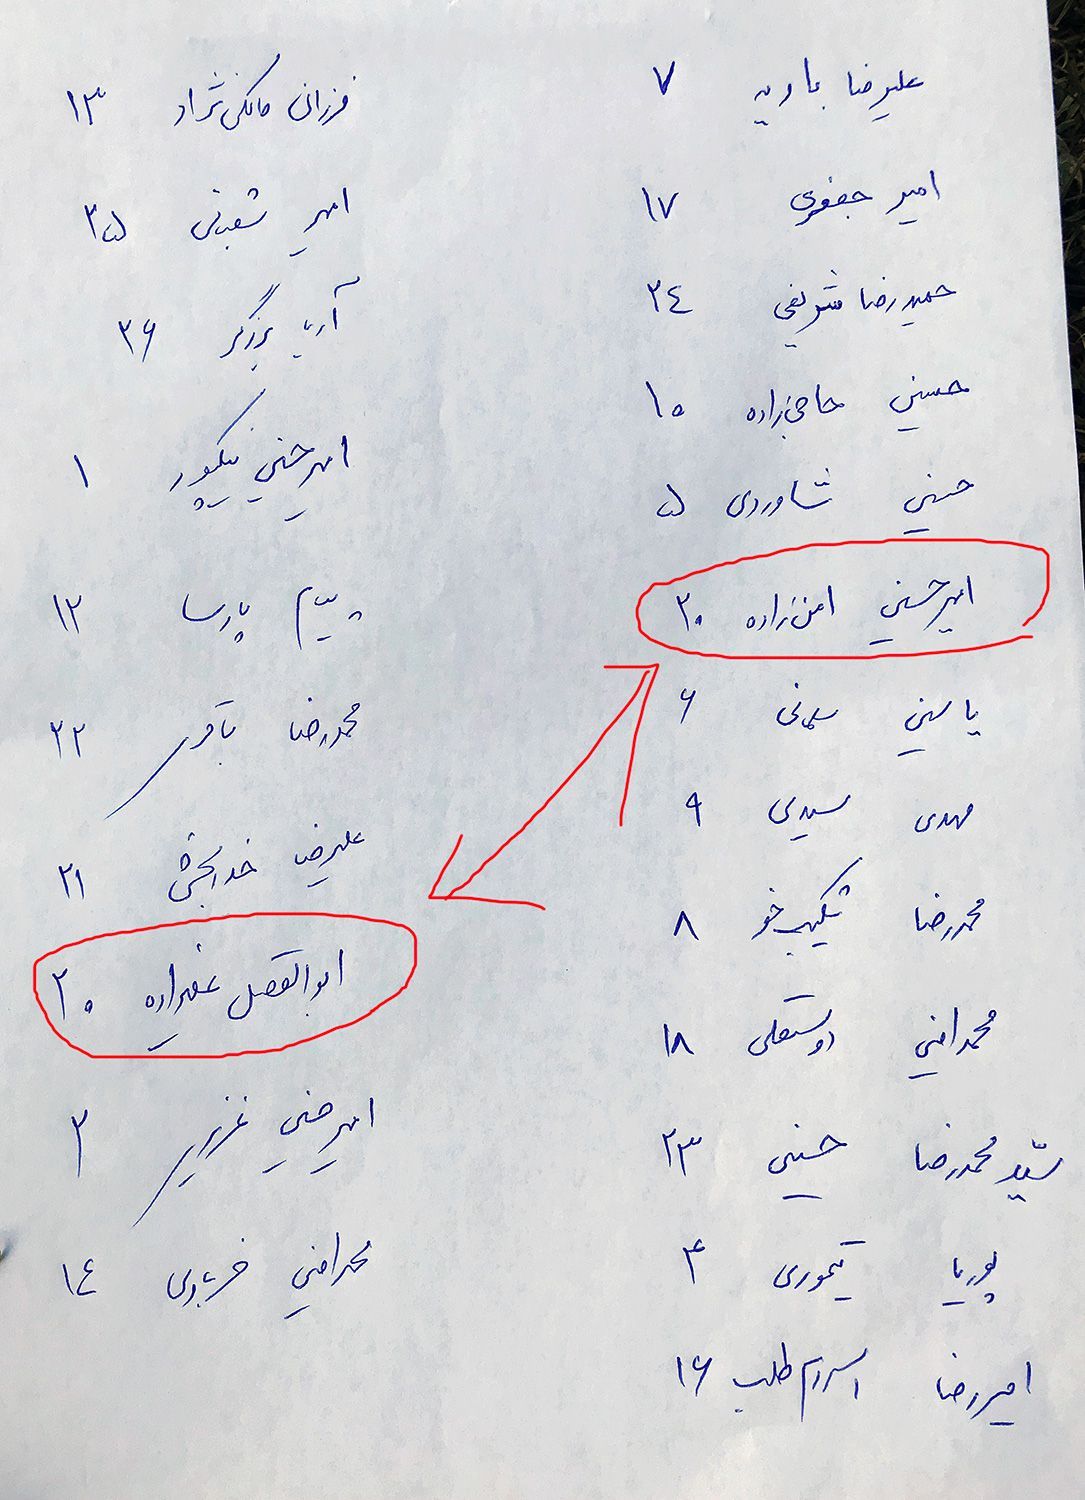 علیرضا باویه ۷
امیر جعفری ۱۷
حمیدرضا شریفی ۲٤
حسین حاجی‌زاده ۱۰
حسین شاوردی ۵
امیرحسین امن‌زاده ۲۰
یاسین سلمانی ۶
مهدی سیدی ۹
محمدرضا شکیب‌خو ۸
محمدامین دوستعلی ۱۸
سیّد محمدرضا حسینی ۲۳
پوریا تیموری ۴
امیررضا اسرم طلب ۱۶
فرزان مالکی‌نژاد ۱۳
امیر شعبانی ۳۵
آریا برزگر ۳۶
امیرحسین نیکپور ۱
پیام پارسا ۱۲
محمدرضا باقری ۲۲
علیرضا خدابخشی ۲۱
ابوالفضل ۲۰
امیرحسین ۲
محمدامین ۱٤